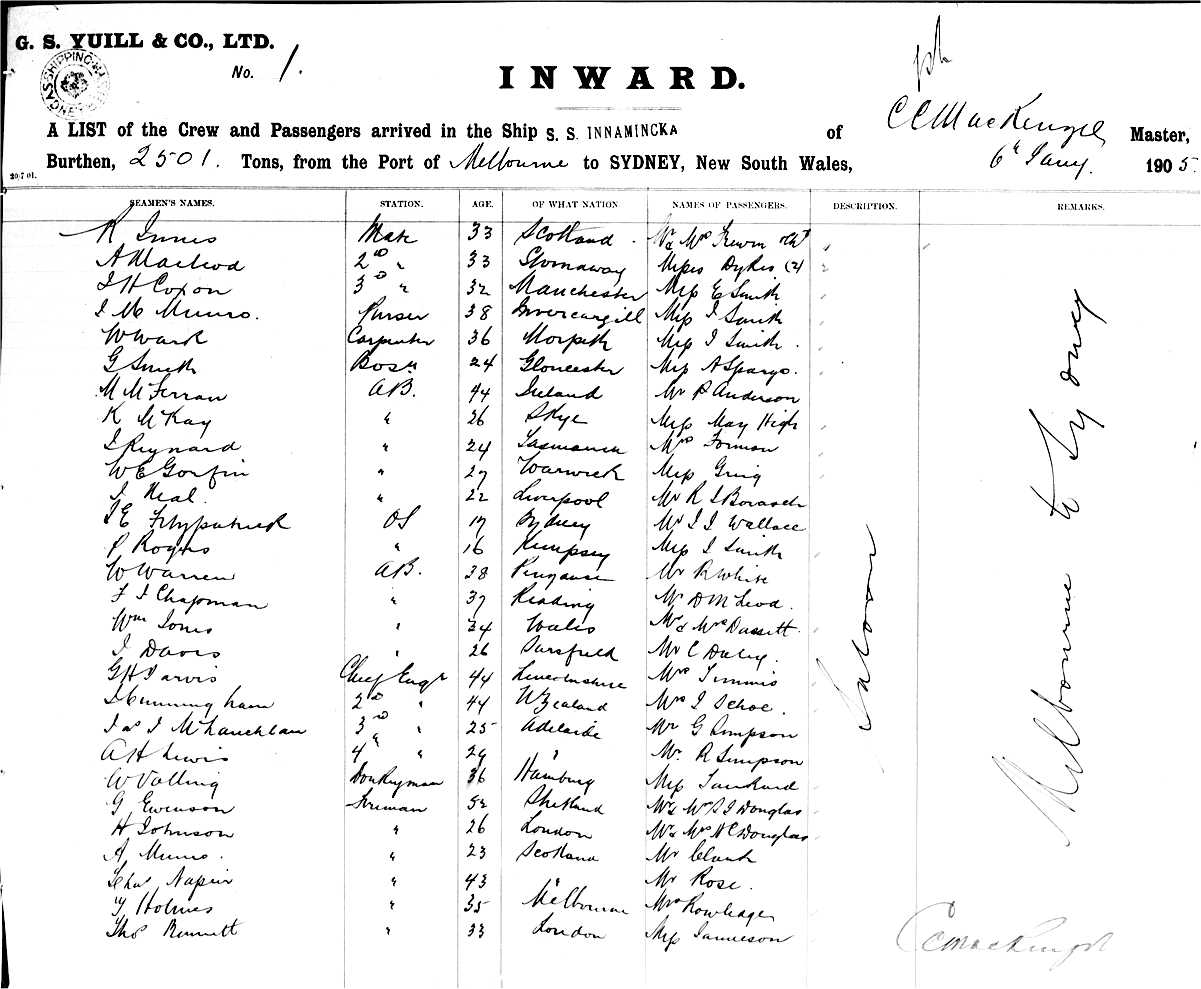 G. S. YUILL & CO., LTD.
No. 1.
INWARD.
A LIST of the Crew and Passengers arrived in the Ship S. S. INNAMINCKA of C C MacKenzie Master,
Burthen, 2501. Tons, from the Port of Melbourne to SYDNEY, New South Wales, 6th Jany. 1905.
20·7·01.
SEAMEN'S NAMES. STATION. AGE. OF WHAT NATION NAMES OF PASSENGERS. DESCRIPTION. REMARKS.
R Innes Mate 33 Scotland Mr & Mrs
A Macleod 2nd " 33 Stornaway Misses Dykes (2)
J H Coxon 3rd " 32 Manchester Miss E Smith
J M Munro. Purser 38 Invercargill Miss J Smith
W Ward Carpenter 36 Morpeth Miss J Smith
G Smith Bosn 24 Gloucester Miss A Spargo.
M McFerran AB. 44 Ireland Mr P Anderson
K McKay " 26 Skye Miss May High
J Reynard " 24 Tasmania Mrs Forman
W E Gorfin " 27 Warwick Miss
J Neal " 22 Liverpool Mr R J
J E Fitzpatrick OS 17 Sydney Mr J J Wallace
P Rogers " 16 Kempsey Miss J Smith
W Warren AB. 38 Penzance Mr R White
F J Chapman " 37 Reading Mr D McLeod.
Wm Jones " 34 Wales Mr & Mrs Dassett
J Davis " 26 Sarsfield Mr C Daley.
G H Jarvis Chief Engr 44 Lincolnshire Mrs Timmis
J Cunningham 2nd " 44 N Zealand Mrs J
Jas J McLauchlan 3rd " 25 Adelaide Mr G Simpson
A H Lewis 4th " 29 " Mr R Simpson
W Valling Donkeyman 36 Hamburg Miss Tankard
G Ewenson Fireman 52 Shetland Mr & Mrs S J Douglas
H Johnson " 26 London Mr & Mrs N C Douglas
A Munro. " 23 Scotland Mr Clark
Chas Napier " 43 " Mr Rose.
Holmes " 35 Melbourne Mrs
Thos Bennett " 33 London Miss Jamieson
Saloon
Melbourne to Sydney
C C MacKenzie